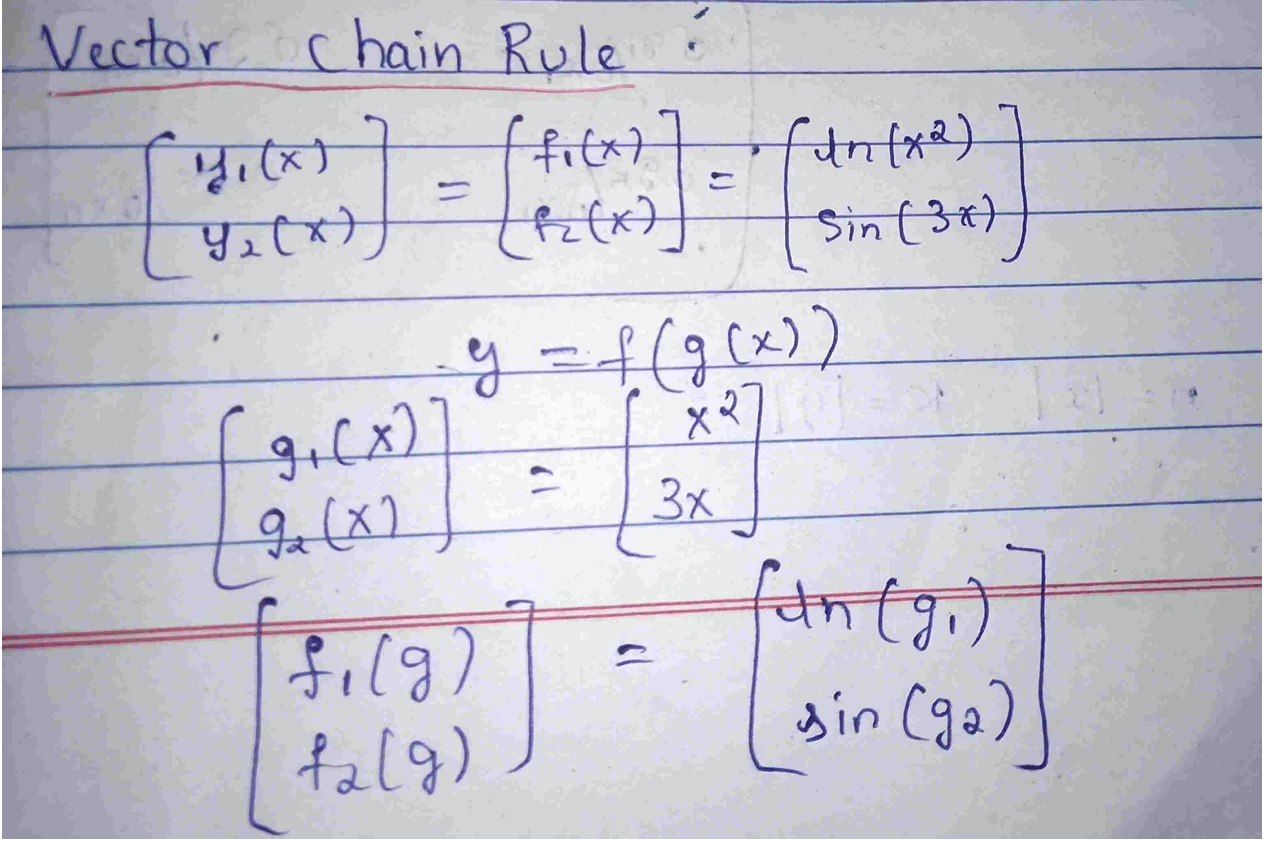 Vector Chain Rule :
[y₁(x) y₂(x)] = [f₁(x) f₂(x)] = [ln(x²) sin(3x)]
y = f(g(x))
[g₁(x) g₂(x)] = [x² 3x]
[f₁(g) f₂(g)] = [ln(g₁) sin(g₂)]